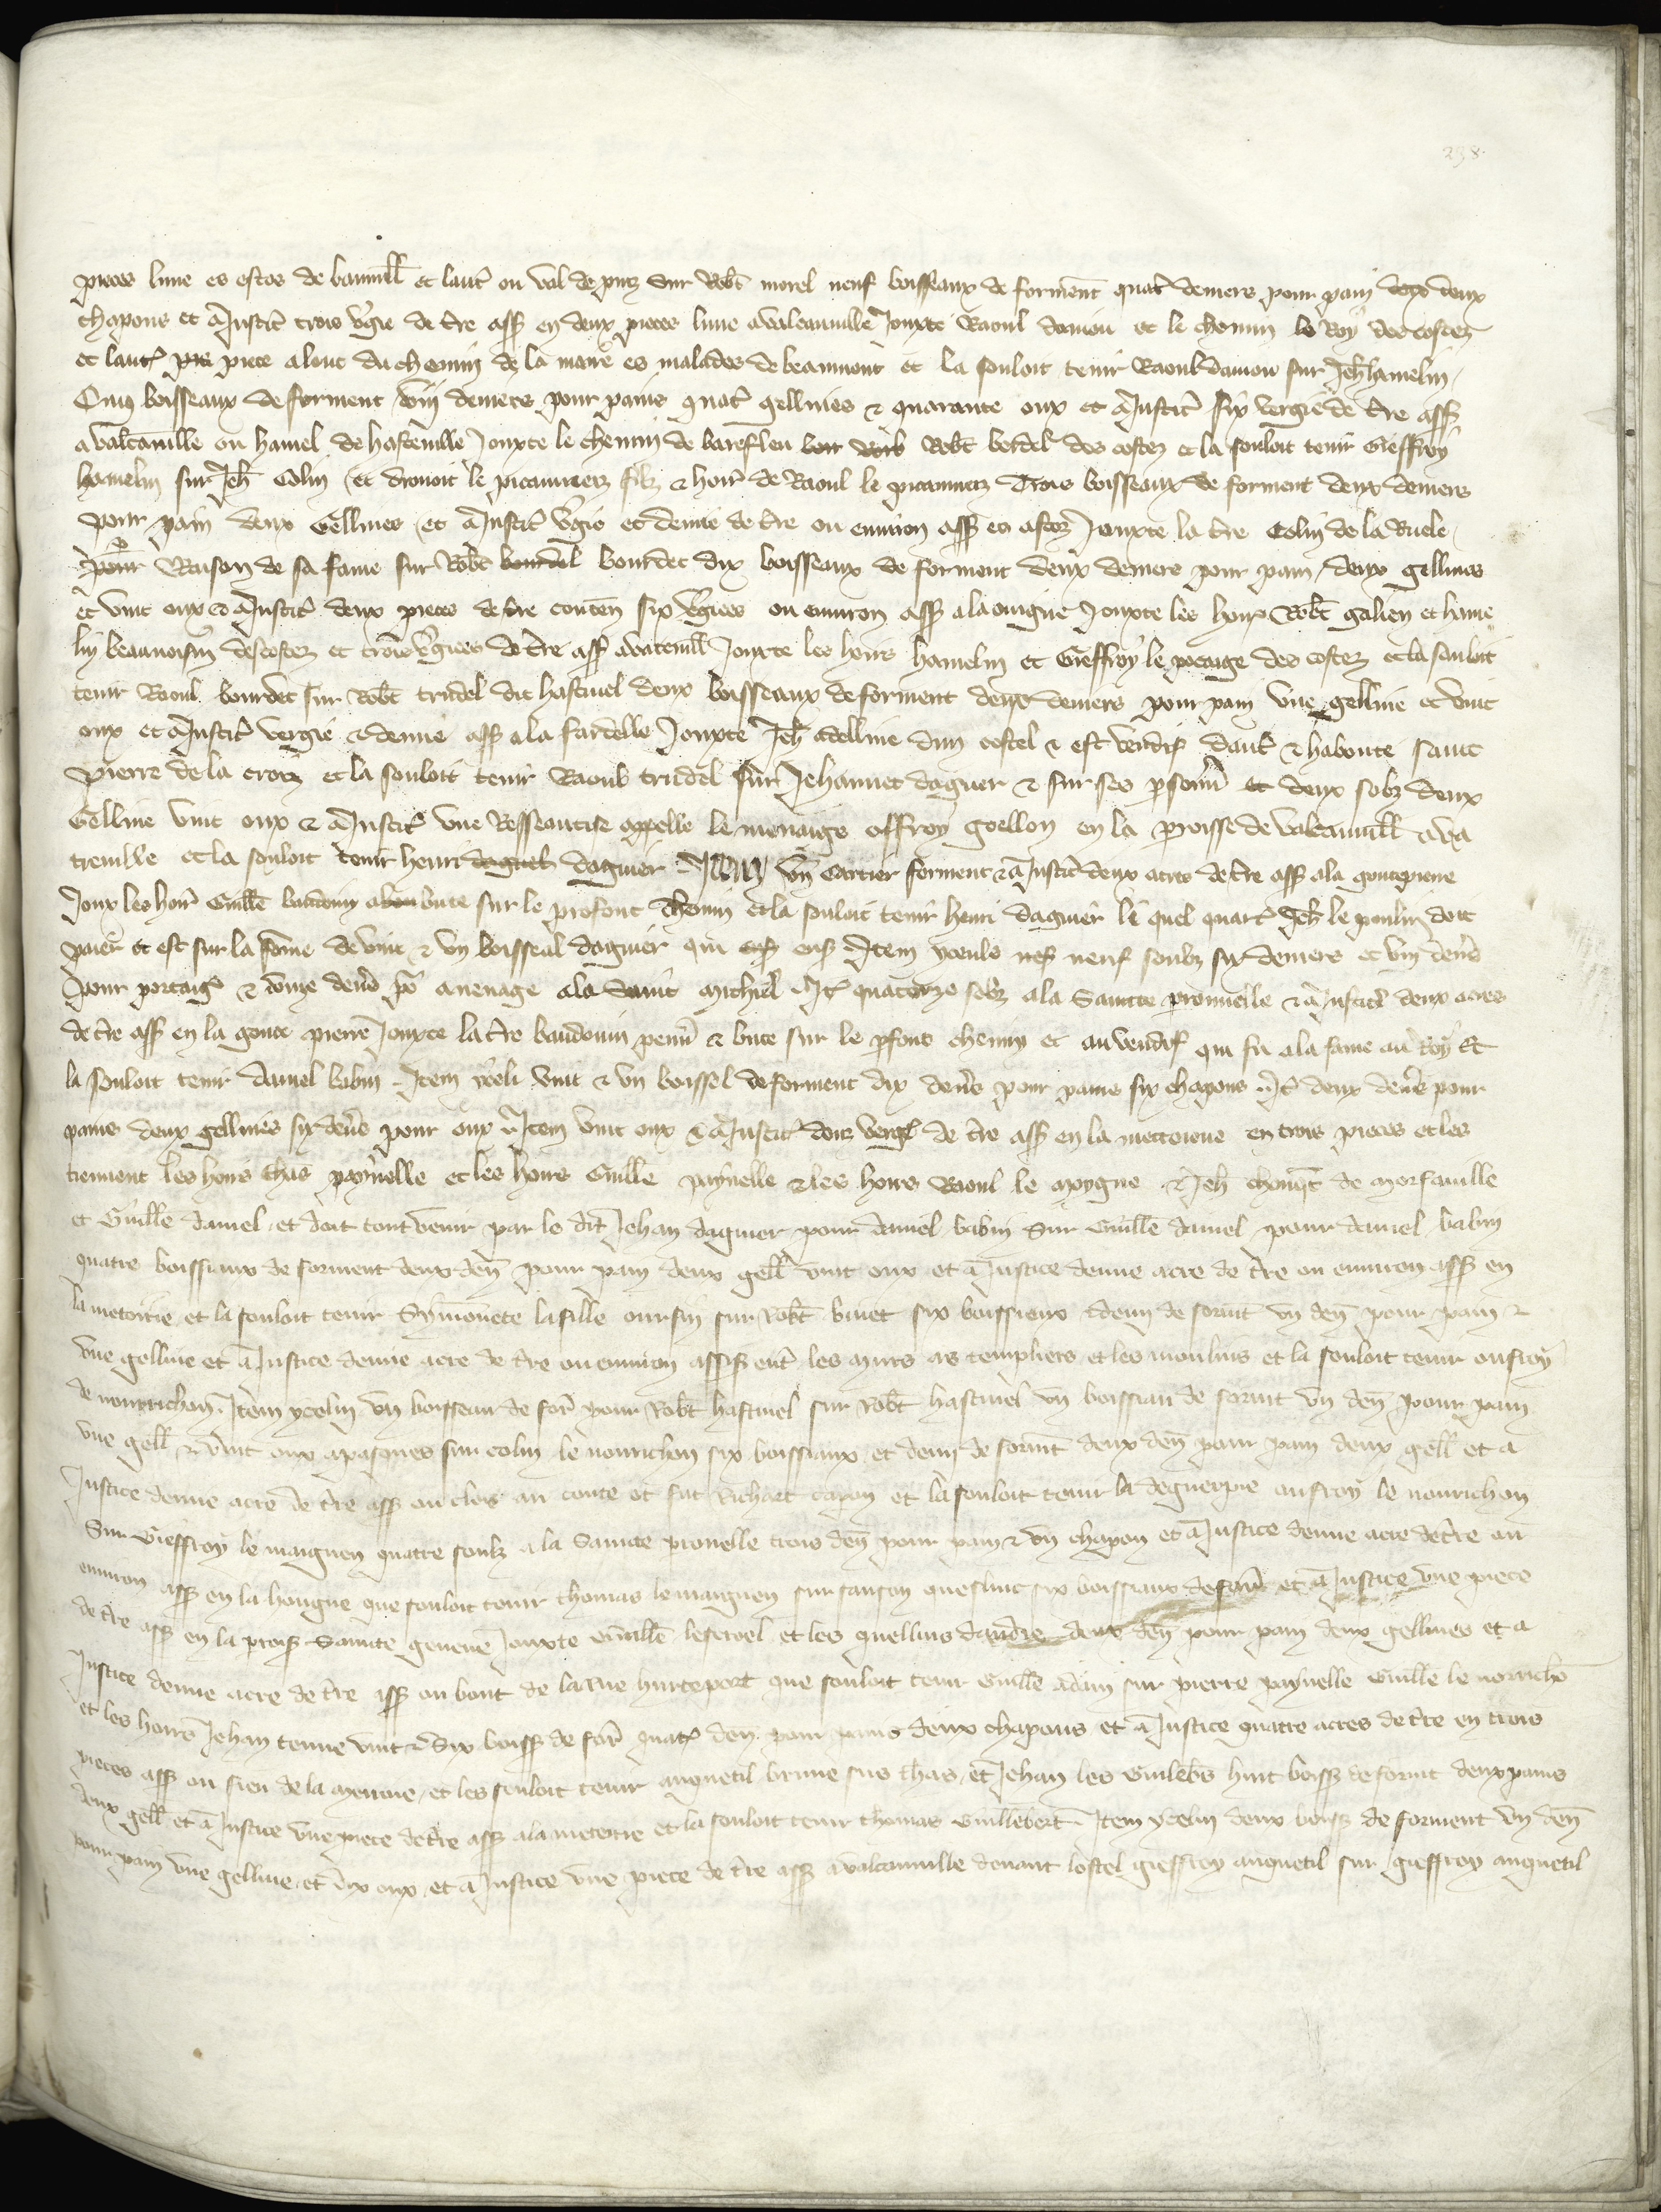 238.
pieces lune es estos de banuill et laut ou val de puz Sur Robt morel neuf boisseaux de forment quatr deniers pour pain deux deux
chapons et a Justic trois vgie de tre ass en deux pieces lune a valcanuille Jouxte Raoul damou et le chemin le Roy des costez
et laut pie piece alonc du chemin de la mare es malades de beaumont et la souloit tenir Raoul damou sur Jeh hamelin
Cinq boisseaux de forment viij deniers pour pains quatr gellines & quarante oux et a Justic six vergie de tre ass
a valcanuille ou hamel de hasteuille Jouxte le chemin de bareflen Robt bordel des costez et la souloit tenir Gieffroy
hamelin sur Jeh Colin et drouoit le picamierz filz & hoir de Raoul le picamierz Trois boisseaux de forment deux deniers
pour pain deux Gellines et a Justic vgie et demie de tre ou enuiron ass es astez Jouxte la tre Colin de la Ruele
pour Raison de sa fame sur Robt bourdel bourdet dix boisseaux de forment deux deniers pour pain deux gellines
et vint oux & a Justic deux pieces de tre conten six vgiees ou enuiron ass ala ouigne Jouxte les hoirs Robt galien et hame
lin beaunoisin descostez et trois vgiees de tre ass a vateuill Jouxte les hoirs hamelin et Gieffroy le potaige des costez et la souloit
tenir Raoul bourdet sur Robt trudel dit hastiuel deux boisseaux de forment deux deniers pour pain vne gelline et vint
oux et a Justic vergie & demie ass a la fardelle Jouxte Jeh adelline dun costel & est vendis dault & haboute saint
pierre de la croix et la souloit tenir Raoul trudel sur Jehannet daguier & sur ses psonn et deux solz deux
Gelline vint oux & a Justic vne Resseantise appelle le menaige offroy goellon en la proisse de valcanuill a va
treuille et la souloit tenir henri daguel daguier Item vn Cartier forment & a Justic deux acres de tre ass ala goutepierre
Joux les hoir Guille baudouin abou bute sur le profont chemin et la souloit tenir henri daguier le quel quart Jeh le poulin doit
paier et est sur la some de vint & vn boisseal daguier qui ens Item yceuls nef neuf soubz six deniers et viij denrs
pour portaige & donze denrs po auenage ala Saint Michiel It quatorze solz a la Saincte pronnelle & a Justic deux acres
de tre ass en la goute pierre Jouxte la tre baudouin penu & bute sur le pfont chemin et au vendif qui fu ala fame au Roy Et
la souloit tenir daniel babin Item yceli vint & vn boissel de forment dix denrs pour pains six chapons It deux denrs pour
pains deux gellines six denrs pour oux Item vint oux & a Justic doiz verg de tre ass en la mettoirie en trois pieces et les
tiennent les hoirs thas paynelle et les hoirs Guille paynelle & les hoirs Raoul le moygne & Jeh chouqt de morsanuille
et Guille daniel et doit tout venir par le dit Jehan daguier pour daniel babin Sur Guille daniel pour daniel babin
quatre boissiaux de forment deux den pour pain deux gell vint oux et a Justice demie acre de tre ou enuiron ass en
la metoirie et la souloit tenir Symonete la fille oursin sur Robt binet six boissieux & demi de formt vn den pour pain &
vne gelline et a Justice demie acre de tre ou enuiron assis entr les murs as templiers et les moulins et la souloit tenir onfroy
de nourrichon Item ycelin vn boisseau de for pour Robt hastiuel sur Robt hastiuel vn boissiau de formt vn den pour pain
vne gell & vint oux apasques sur colin le nourichon six boissiaux et demi de formt deux den pour pain deux gell et a
Justice demie acre de tre ass ou clos au conte et fut Richart capon et la souloit tenir la deguerpie onfroy le nourichon
Sur Gieffroy le maignen quatre soulz a la Saincte pronelle trois den pour pain & vn chapon et a Justice demie acre de tre ou
enuiron ass en la hougue que souloit tenir thomas le maignen sur sanson quesnut six boissiaux de formt et a Justice vne piece
de tre ass en la proiss Saincte geneue Jouxte Guille leseroel et les quellins dandre deux den pour pain deux gellines et a
Justice demie acre de tre ass ou bout de la rue hurteport que souloit tenir Guille adam sur pierre paynelle Guille le norricho
et les hoirs Jehan tenne vint & Six boiss de for quatr den pour pains deux chapons et a Justice quatre acres de tre en trois
pieces ass ou fieu de la mernie et les souloit tenir anquetil brune sus thas et Jehan les Guilebs huit boiss de formt deux pains
deux gell et a Justice vne piece de tre ass ala meterie et la souloit tenir thomas Guillebert Item ycelin deux boiss de forment vn den
pour pain vne gelline et dix oux et a Justice vne piece de tre ass a valcanuille deuant lostel gieffroy anquetil sur gieffroy anquetil